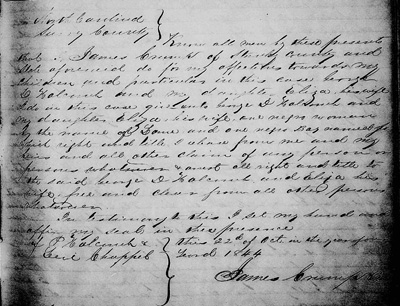 North Carolina
Surry County
Know all men by these presents
that I James Crump of Surry County and
State aforesaid do for my affections towards my
children and particular in this case George
D Holcomb and my daughter Eliza his wife
I do in this case give unto George D Holcomb and
my daughter Eliza his wife one negro woman
by the name of and one negro boy named
which right and title I chare from me and my
heirs and all other claim of any person or
persons whatsoever and all right and title to
the said George D Holcomb and Eliza his
wife free and clear from all other persons
whatsoever
In testimony to this I set my hand and
affix my seal in the presence
of P Holcomb & this 22d of Oct in the year of our
Chappel Lord 1844
James Crump